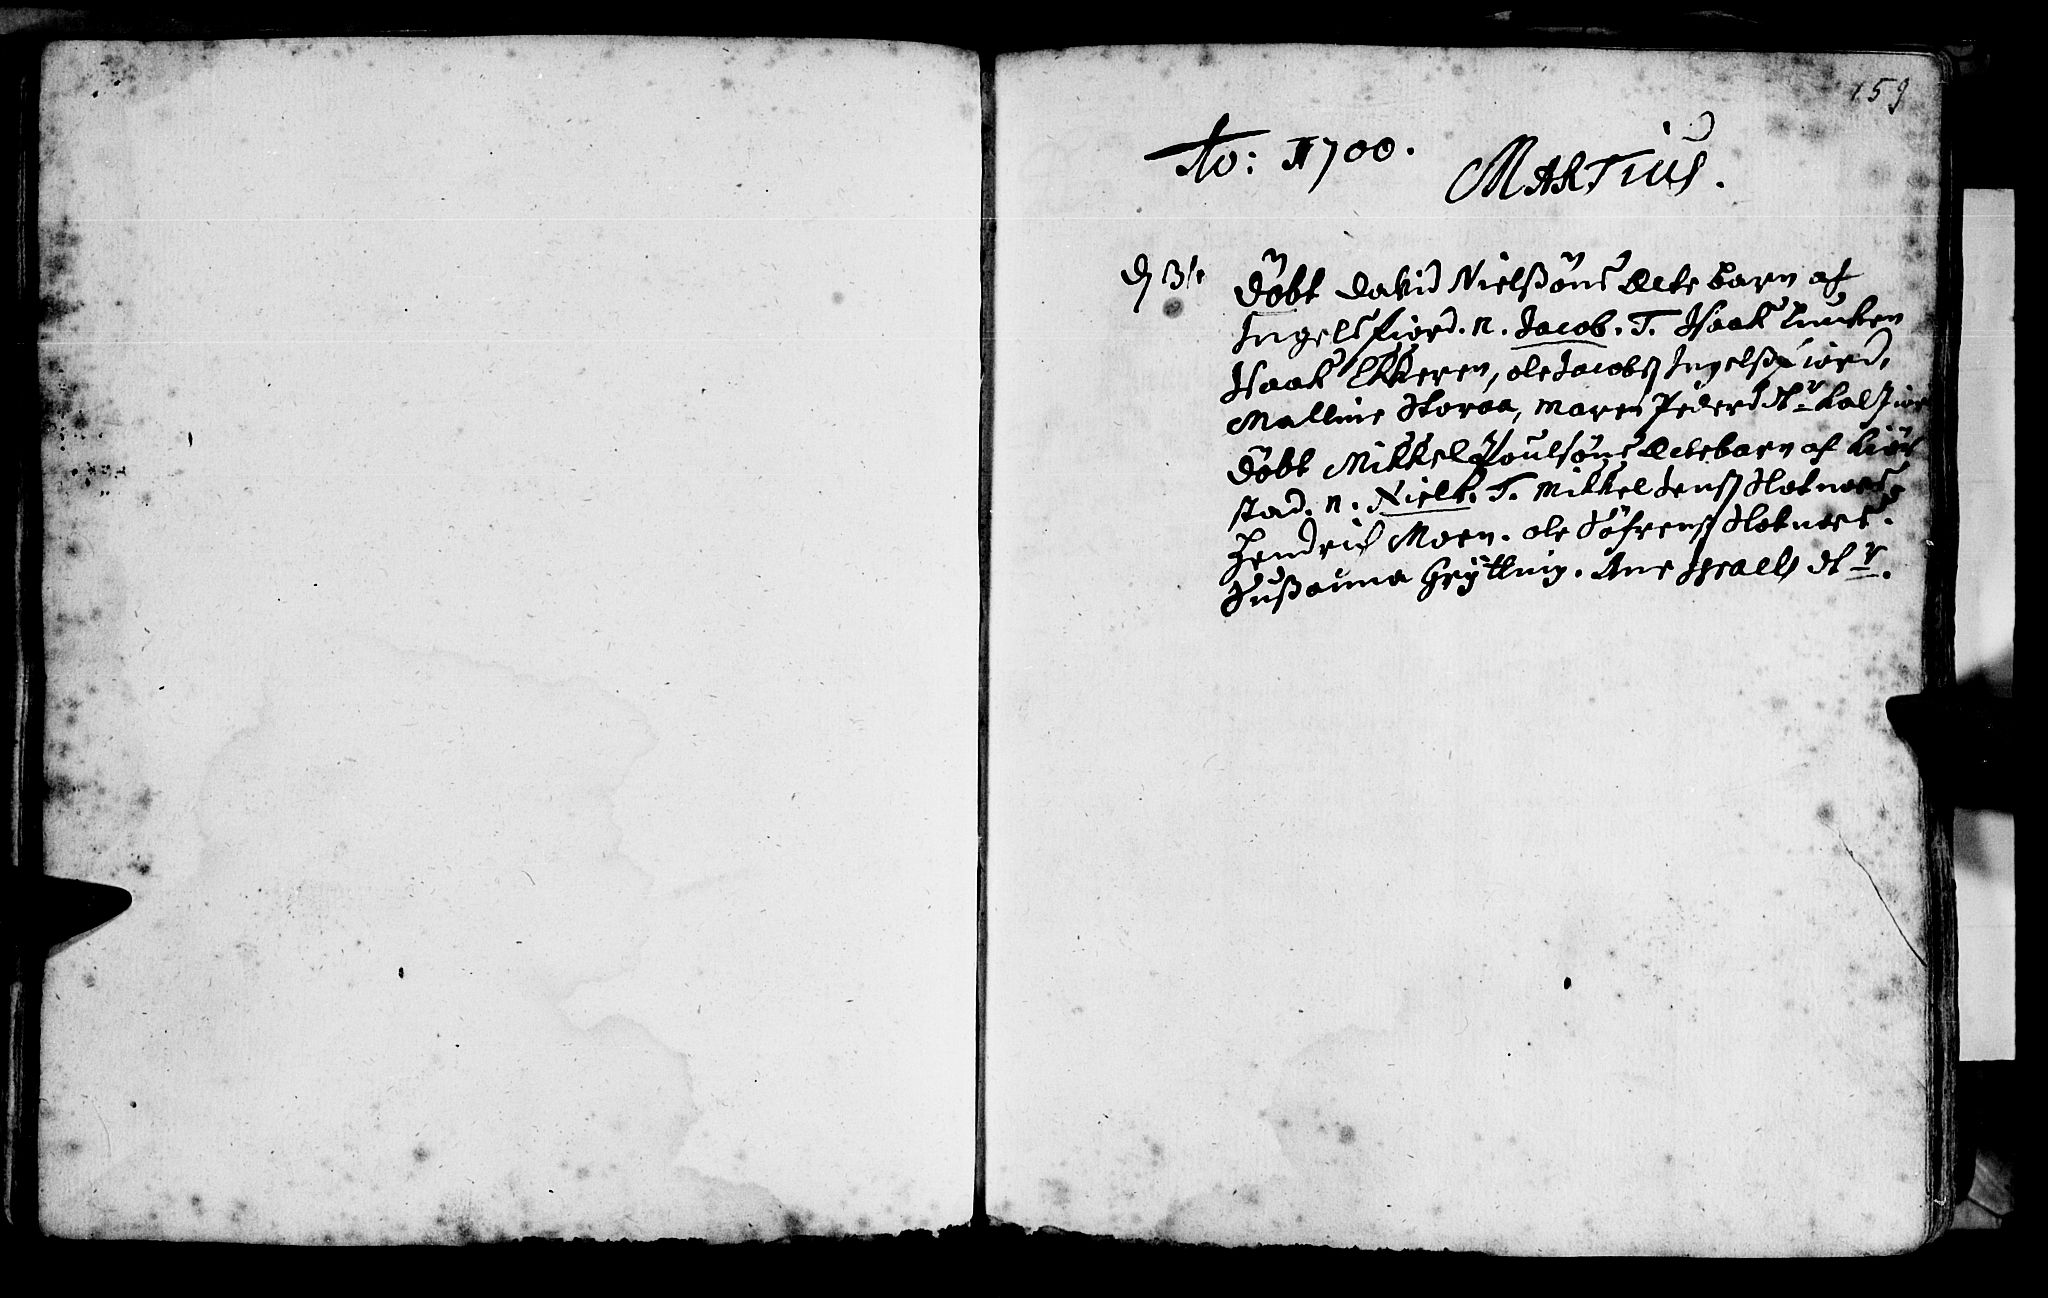 159
Ao: 1700.
MARTIUS.
d 31. döbt David Nielßöns Ecte barn af
Ingelsfiord. n. Jacob. T. Isaak
Isaak Ekkeren, ole Jacobs Ingelßfiord,
Malline Storaa, maren Peders dtr
döbt Mikkel Poulsöns Ectebarn af
stad. n. Niels. T. Mikkel Jens Slotnæs
Hendrich Moen. ole Söfrens Slotnæs.
Sußanna Gryttnig. Ane Israels dtr.